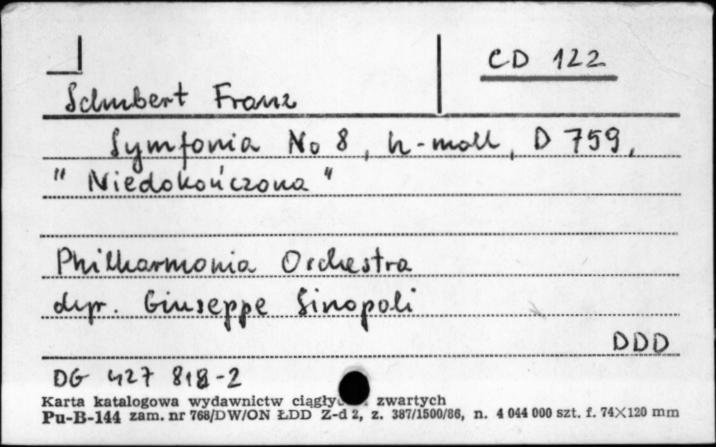 CD 122
Schubert Franz
Symfonia No 8, h-moll, D 759,
"Niedokończona"
Philharmonia Orchestra
dyr. Giuseppe Sinopoli
DDD
DG 427 818-2
Karta katalogowa wydawnictw zwartych
Pu-B-144 zam. nr 768/DW/ON ŁDD Z-d 2, z. 387/1500/86, n. 4 044 000 szt. f. 74×120 mm